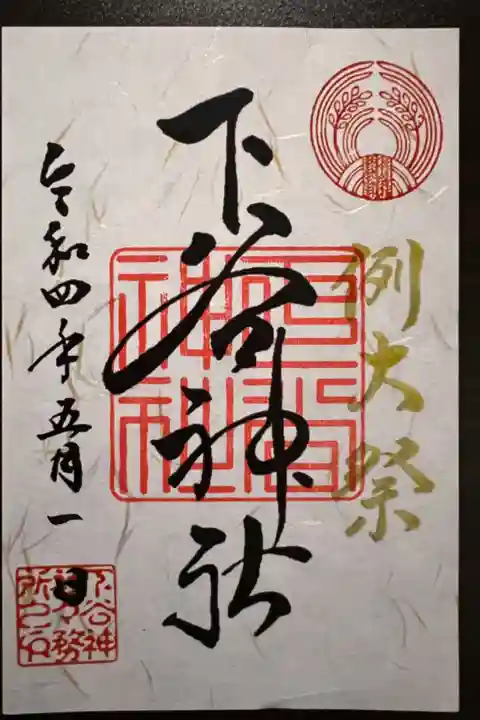 例大祭
下谷神社
令和四年五月一日
下谷神
社務
所之印